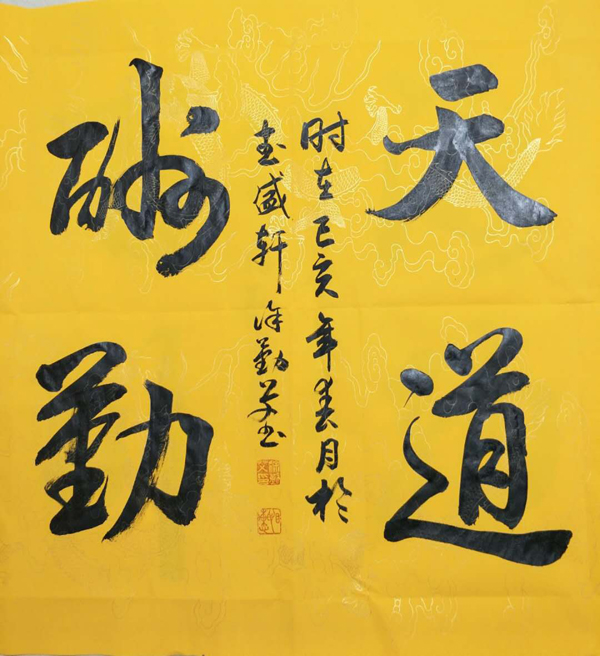 天道
酬勤
时在己亥年春月於
盛轩徐勤书